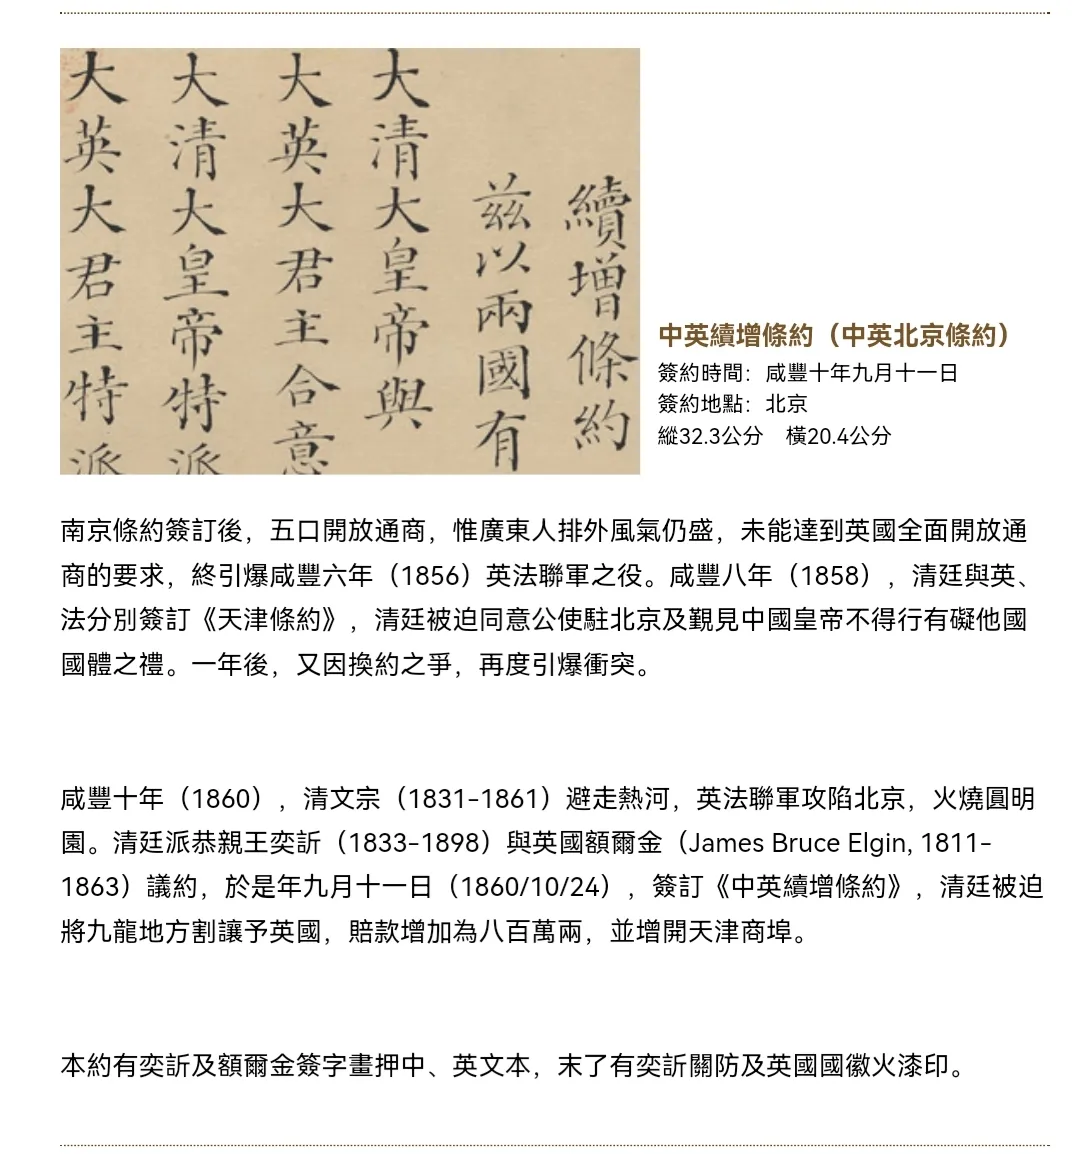 續增條約
茲以兩國有
大清大皇帝與
大英大君主合意
大清大皇帝特派
大英大君主特派
中英續增條約（中英北京條約）
簽約時間：咸豐十年九月十一日
簽約地點：北京
縱32.3公分　橫20.4公分
南京條約簽訂後，五口開放通商，惟廣東人排外風氣仍盛，未能達到英國全面開放通
商的要求，終引爆咸豐六年（1856）英法聯軍之役。咸豐八年（1858），清廷與英、
法分別簽訂《天津條約》，清廷被迫同意公使駐北京及覲見中國皇帝不得行有礙他國
國體之禮。一年後，又因換約之爭，再度引爆衝突。
咸豐十年（1860），清文宗（1831-1861）避走熱河，英法聯軍攻陷北京，火燒圓明
園。清廷派恭親王奕訢（1833-1898）與英國額爾金（James Bruce Elgin, 1811-
1863）議約，於是年九月十一日（1860/10/24），簽訂《中英續增條約》，清廷被迫
將九龍地方割讓予英國，賠款增加為八百萬兩，並增開天津商埠。
本約有奕訢及額爾金簽字畫押中、英文本，末了有奕訢關防及英國國徽火漆印。